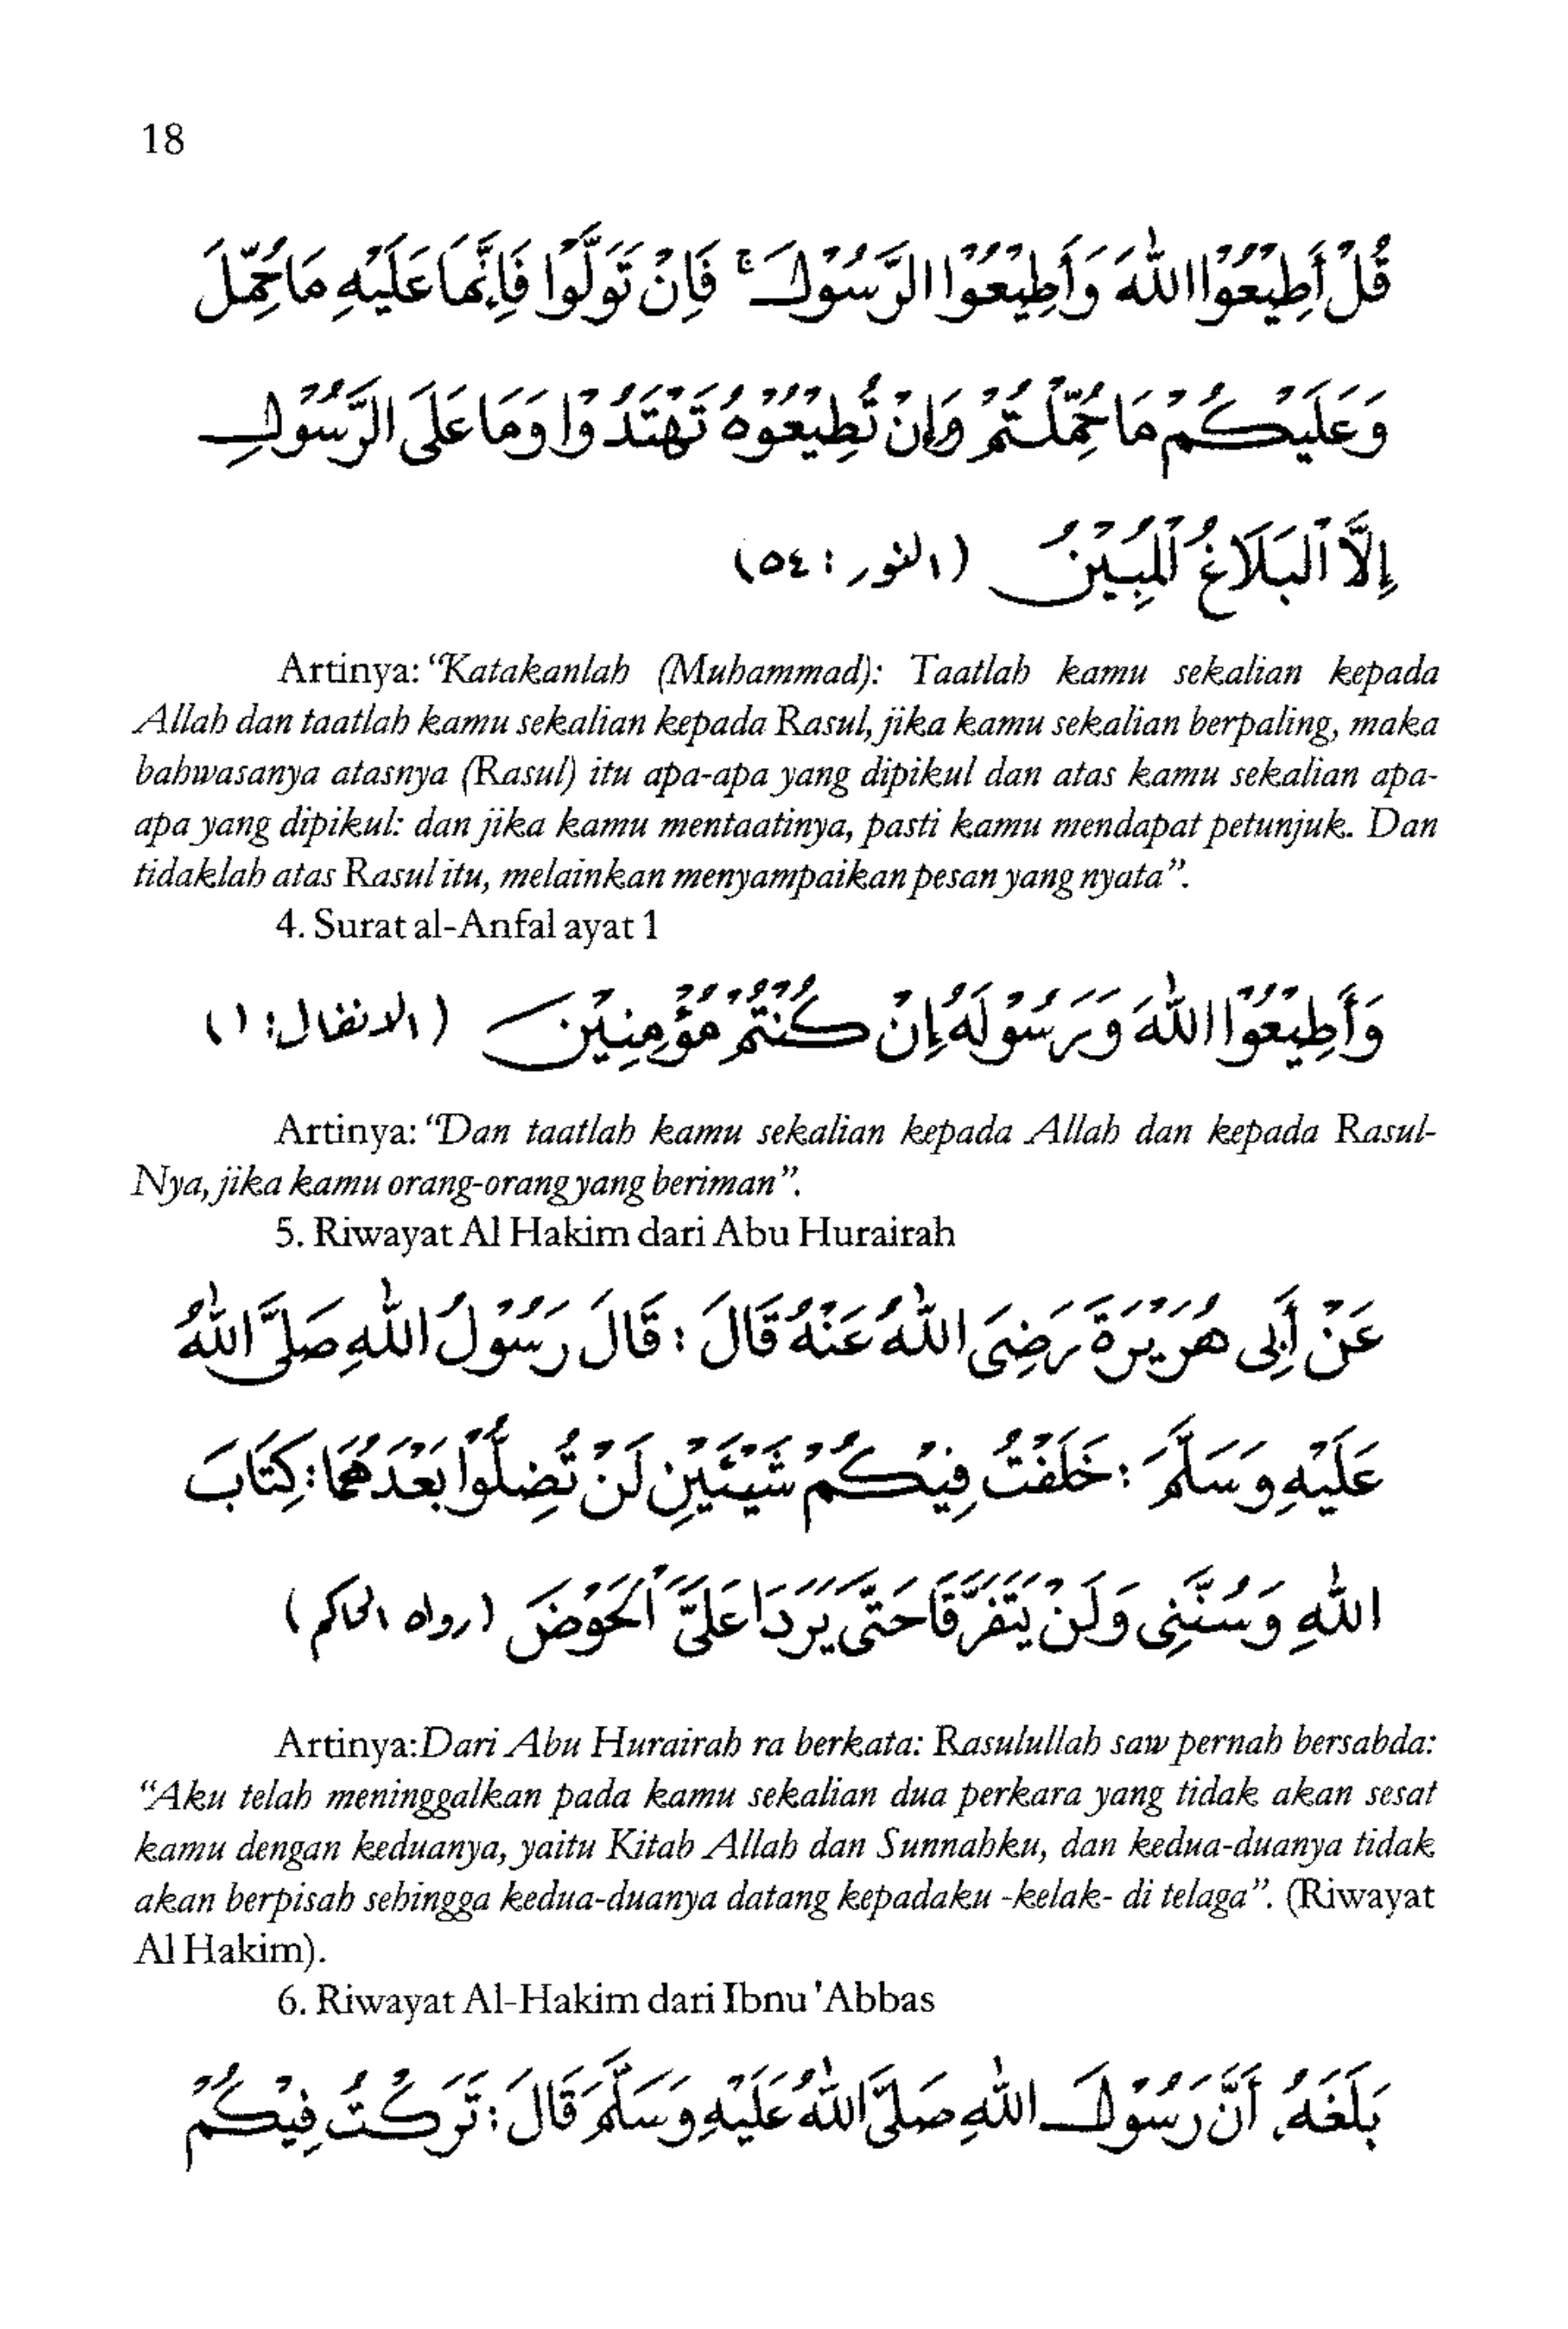 18
قُلْ أَطِيْعُوْا اللّٰهَ وَأَطِيْعُوْا الرَّسُوْلَ ۚ فَاِنْ تَوَلَّوْا فَاِنَّمَا عَلَيْهِ مَا حُمِّلَ
وَعَلَيْكُمْ مَا حُمِّلْتُمْ وَاِنْ تُطِيْعُوْهُ تَهْتَدُوْا وَمَا عَلَى الرَّسُوْلِ
إِلَّا الْبَلَاغُ الْمُبِيْنُ (النور : ٥٤)
Artinya: “Katakanlah (Muhammad): Taatlah kamu sekalian kepada
Allah dan taatlah kamu sekalian kepada Rasul, jika kamu sekalian berpaling, maka
bahwasanya atasnya (Rasul) itu apa-apa yang dipikul dan atas kamu sekalian apa-
apa yang dipikul: dan jika kamu mentaatinya, pasti kamu mendapat petunjuk. Dan
tidaklah atas Rasul itu, melainkan menyampaikan pesan yang nyata”.
4. Surat al-Anfal ayat 1
وَأَطِيْعُوْا اللّٰهَ وَرَسُوْلَهُ إِنْ كُنْتُمْ مُؤْمِنِيْنَ (الانفال: ١)
Artinya: “Dan taatlah kamu sekalian kepada Allah dan kepada Rasul-
Nya, jika kamu orang-orang yang beriman”.
5. Riwayat Al Hakim dari Abu Hurairah
عَنْ أَبِى هُرَيْرَةَ رَضِىَ اللّٰهُ عَنْهُ قَالَ : قَالَ رَسُوْلُ اللّٰهِ صَلَّى اللّٰهُ
عَلَيْهِ وَسَلَّمَ : خَلَفْتُ فِيْكُمْ شَيْئَيْنِ لَنْ تَضِلُّوْا بَعْدَهُمَا: كِتَابَ
اللّٰهِ وَسُنَّتِى وَلَنْ يَتَفَرَّقَا حَتَّى يَرِدَا عَلَيَّ الْحَوْضَ (رواه الحاكم)
Artinya:Dari Abu Hurairah ra berkata: Rasulullah saw pernah bersabda:
“Aku telah meninggalkan pada kamu sekalian dua perkara yang tidak akan sesat
kamu dengan keduanya, yaitu Kitab Allah dan Sunnahku, dan kedua-duanya tidak
akan berpisah sehingga kedua-duanya datang kepadaku -kelak- di telaga”. (Riwayat
Al Hakim).
6. Riwayat Al-Hakim dari Ibnu 'Abbas
بَلَغَهُ، أَنَّ رَسُوْلَ اللّٰهِ صَلَّى اللّٰهُ عَلَيْهِ وَسَلَّمَ قَالَ : تَرَكْتُ فِيْكُمْ